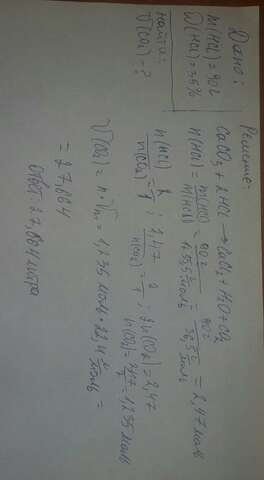 Дано:
m(HCl)=90г
W(HCl)=35%
Найти:
V(CO₂)-?
Решение:
CaCO₃ + 2HCl → CaCl₂ + H₂O + CO₂
n(HCl) = m(HCl)/M(HCl) = 90г/1+35,5 г/моль = 90г/36,5 г/моль = 2,47 моль
n(HCl)/n(CO₂) = 2/1; 2,47/n(CO₂) = 2/1; 2n(CO₂) = 2,47
n(CO₂) = 2,47/2 = 1,235 моль
V(CO₂) = n·Vm = 1,235 моль · 22,4 л/моль =
= 27,664
Ответ: 27,664 литра